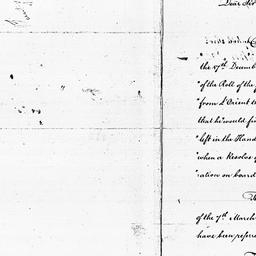 Dear Sir
the 17th Decemb
"of the Roll of the
"from L'Orient t
that he would fu
"left in the Hand
"when a Resolve of
"ration on board
of the 7th March
have been refer